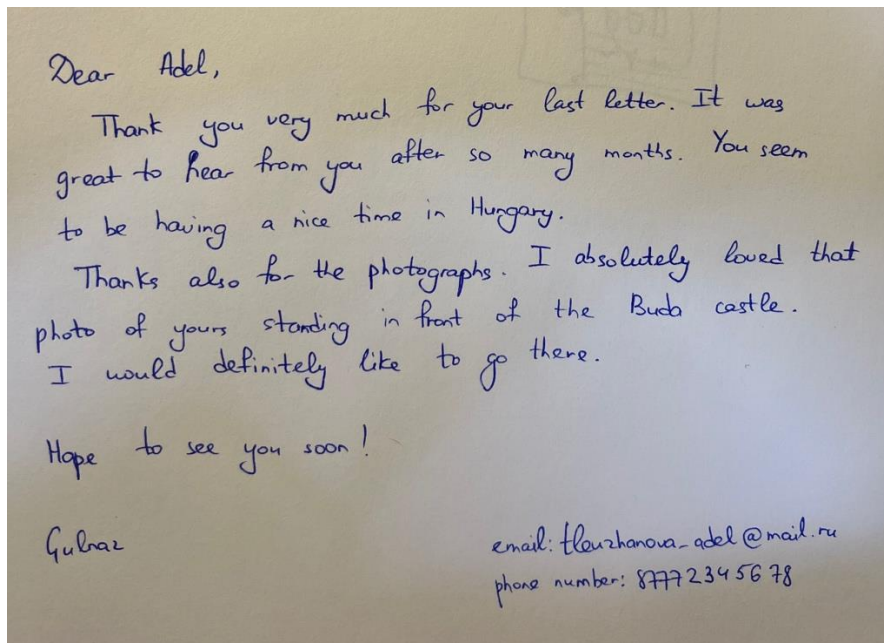 Dear Adel,
Thank you very much for your last letter. It was
great to hear from you after so many months. You seem
to be having a nice time in Hungary.
Thanks also for the photographs. I absolutely loved that
photo of yours standing in front of the Buda castle.
I would definitely like to go there.
Hope to see you soon!
Gulnaz
email: tleuzhanova_adel@mail.ru
phone number: 87772345678